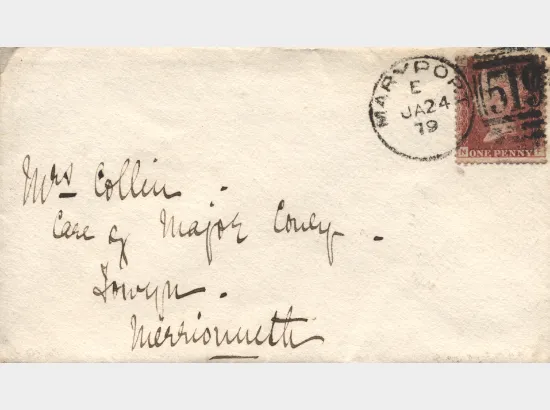 MARYPORT
E
JA24
79
519
ONE PENNY
Mrs Collin
Care of Major Coney
Towyn
Merrionneth